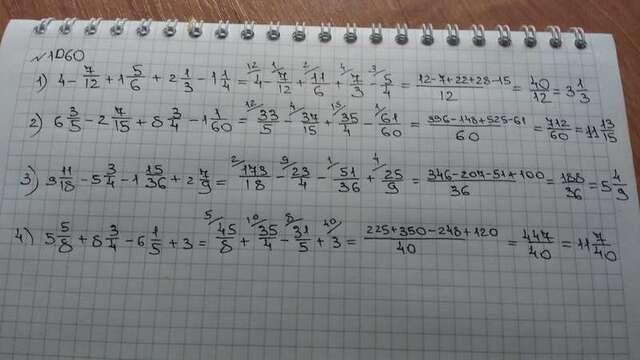 №1060
1) 4 - 7/12 + 1 5/6 + 2 1/3 - 1 1/4 = 12/ 4 - 1/ 7/12 + 2/ 11/6 + 4/ 7/3 - 3/ 5/4 = (12-7+22+28-15)/12 = 40/12 = 3 1/3
2) 6 3/5 - 2 7/15 + 8 3/4 - 1 1/60 = 12/ 33/5 - 4/ 37/15 + 15/ 35/4 - 1/ 61/60 = (396-148+525-61)/60 = 712/60 = 11 13/15
3) 9 11/18 - 5 3/4 - 1 15/36 + 2 7/9 = 2/ 173/18 - 9/ 23/4 - 1/ 51/36 + 4/ 25/9 = (346-207-51+100)/36 = 188/36 = 5 4/9
4) 5 5/8 + 8 3/4 - 6 1/5 + 3 = 5/ 45/8 + 10/ 35/4 - 8/ 31/5 + 40/ 3 = (225+350-248+120)/40 = 447/40 = 11 7/40